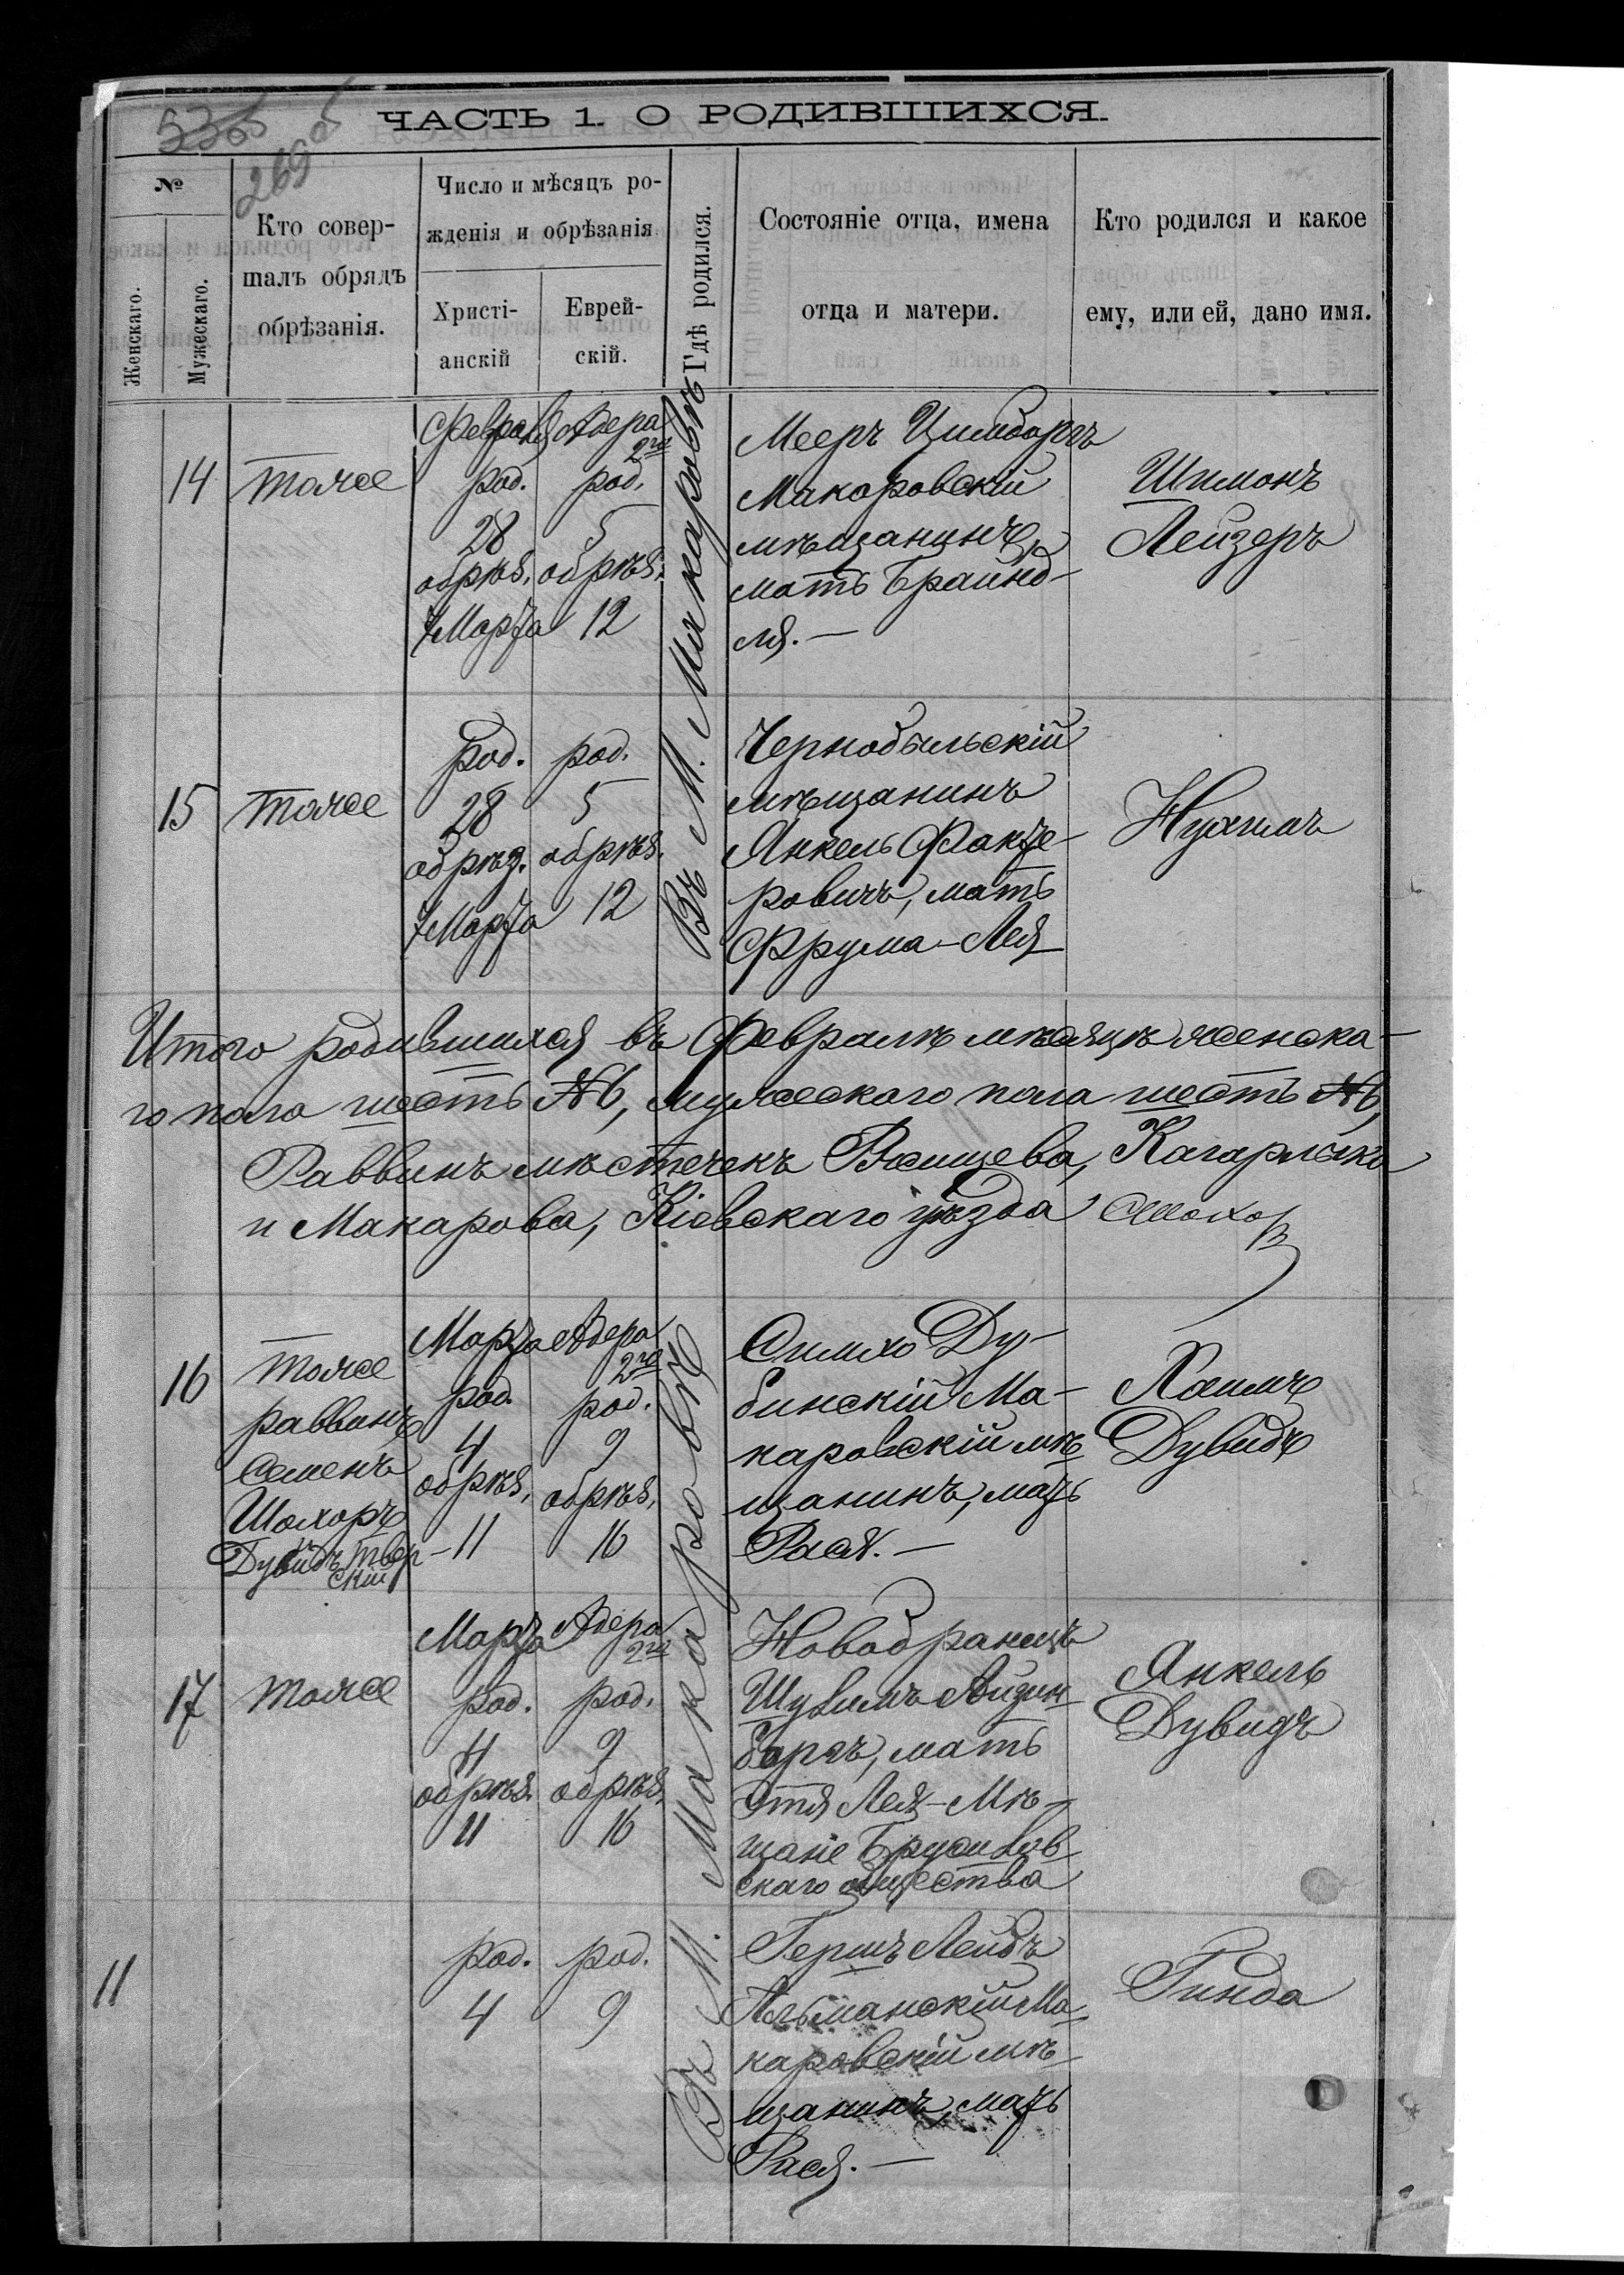 53об
269об
ЧАСТЬ 1. О РОДИВШИХСЯ.
№
Женскаго.
Мужескаго.
Кто совер-
шалъ обрядъ
обрѣзанія.
Число и мѣсяцъ ро-
жденія и обрѣзанія
Христі-
анскій
Еврей-
скій.
Гдѣ родился.
Состояніе отца, имена
отца и матери.
Кто родился и какое
ему, или ей, дано имя.
Въ М. Макаровѣ
14
тоже
Февраля
род.
28
обрѣз.
7 Марта
Адера
2го
род.
5
обрѣз.
12
Мееръ Цимбаргъ
Макаровскій
мѣщанинъ,
мать Браинд-
ля. —
Шимонъ
Лейзеръ
15
тоже
род.
28
обрѣз.
7 Марта
род.
5
обрѣз.
12
Чернобыльскій
мѣщанинъ
Янкель Факто-
ровичъ, мать
Фрума-Лея
Нухимъ
Итого родившихся въ Февралѣ мѣсяцѣ женска-
го пола шесть №6, мужескаго пола шесть №6,
Раввинъ мѣстечекъ Ржищева, Кагарлыка
и Макарова, Кіевскаго уѣзда Шохор
Въ М. Макаровѣ
16
тоже
раввинъ
Семенъ
Шохоръ
Дувидъ Твер-
скій
Марта
род.
4
обрѣз.
11
Адера
2го
род.
9
обрѣз.
16
Симхо Ду-
бинскій Ма-
каровскій мѣ-
щанинъ, мать
Рася. —
Хаимъ
Дувидъ
17
тоже
Марта
род.
4
обрѣз.
11
Адера
2го
род.
9
обрѣз.
16
Новобранецъ
Шулимъ Айзин-
баргъ, мать
Этя Лея - Мѣ-
щане Брусилов-
скаго общества
Янкель
Дувидъ
11
род.
4
род.
9
Гершъ Лейбъ
Альманскій Ма-
каровскій мѣ-
щанинъ, мать
Рася. —
Гинда